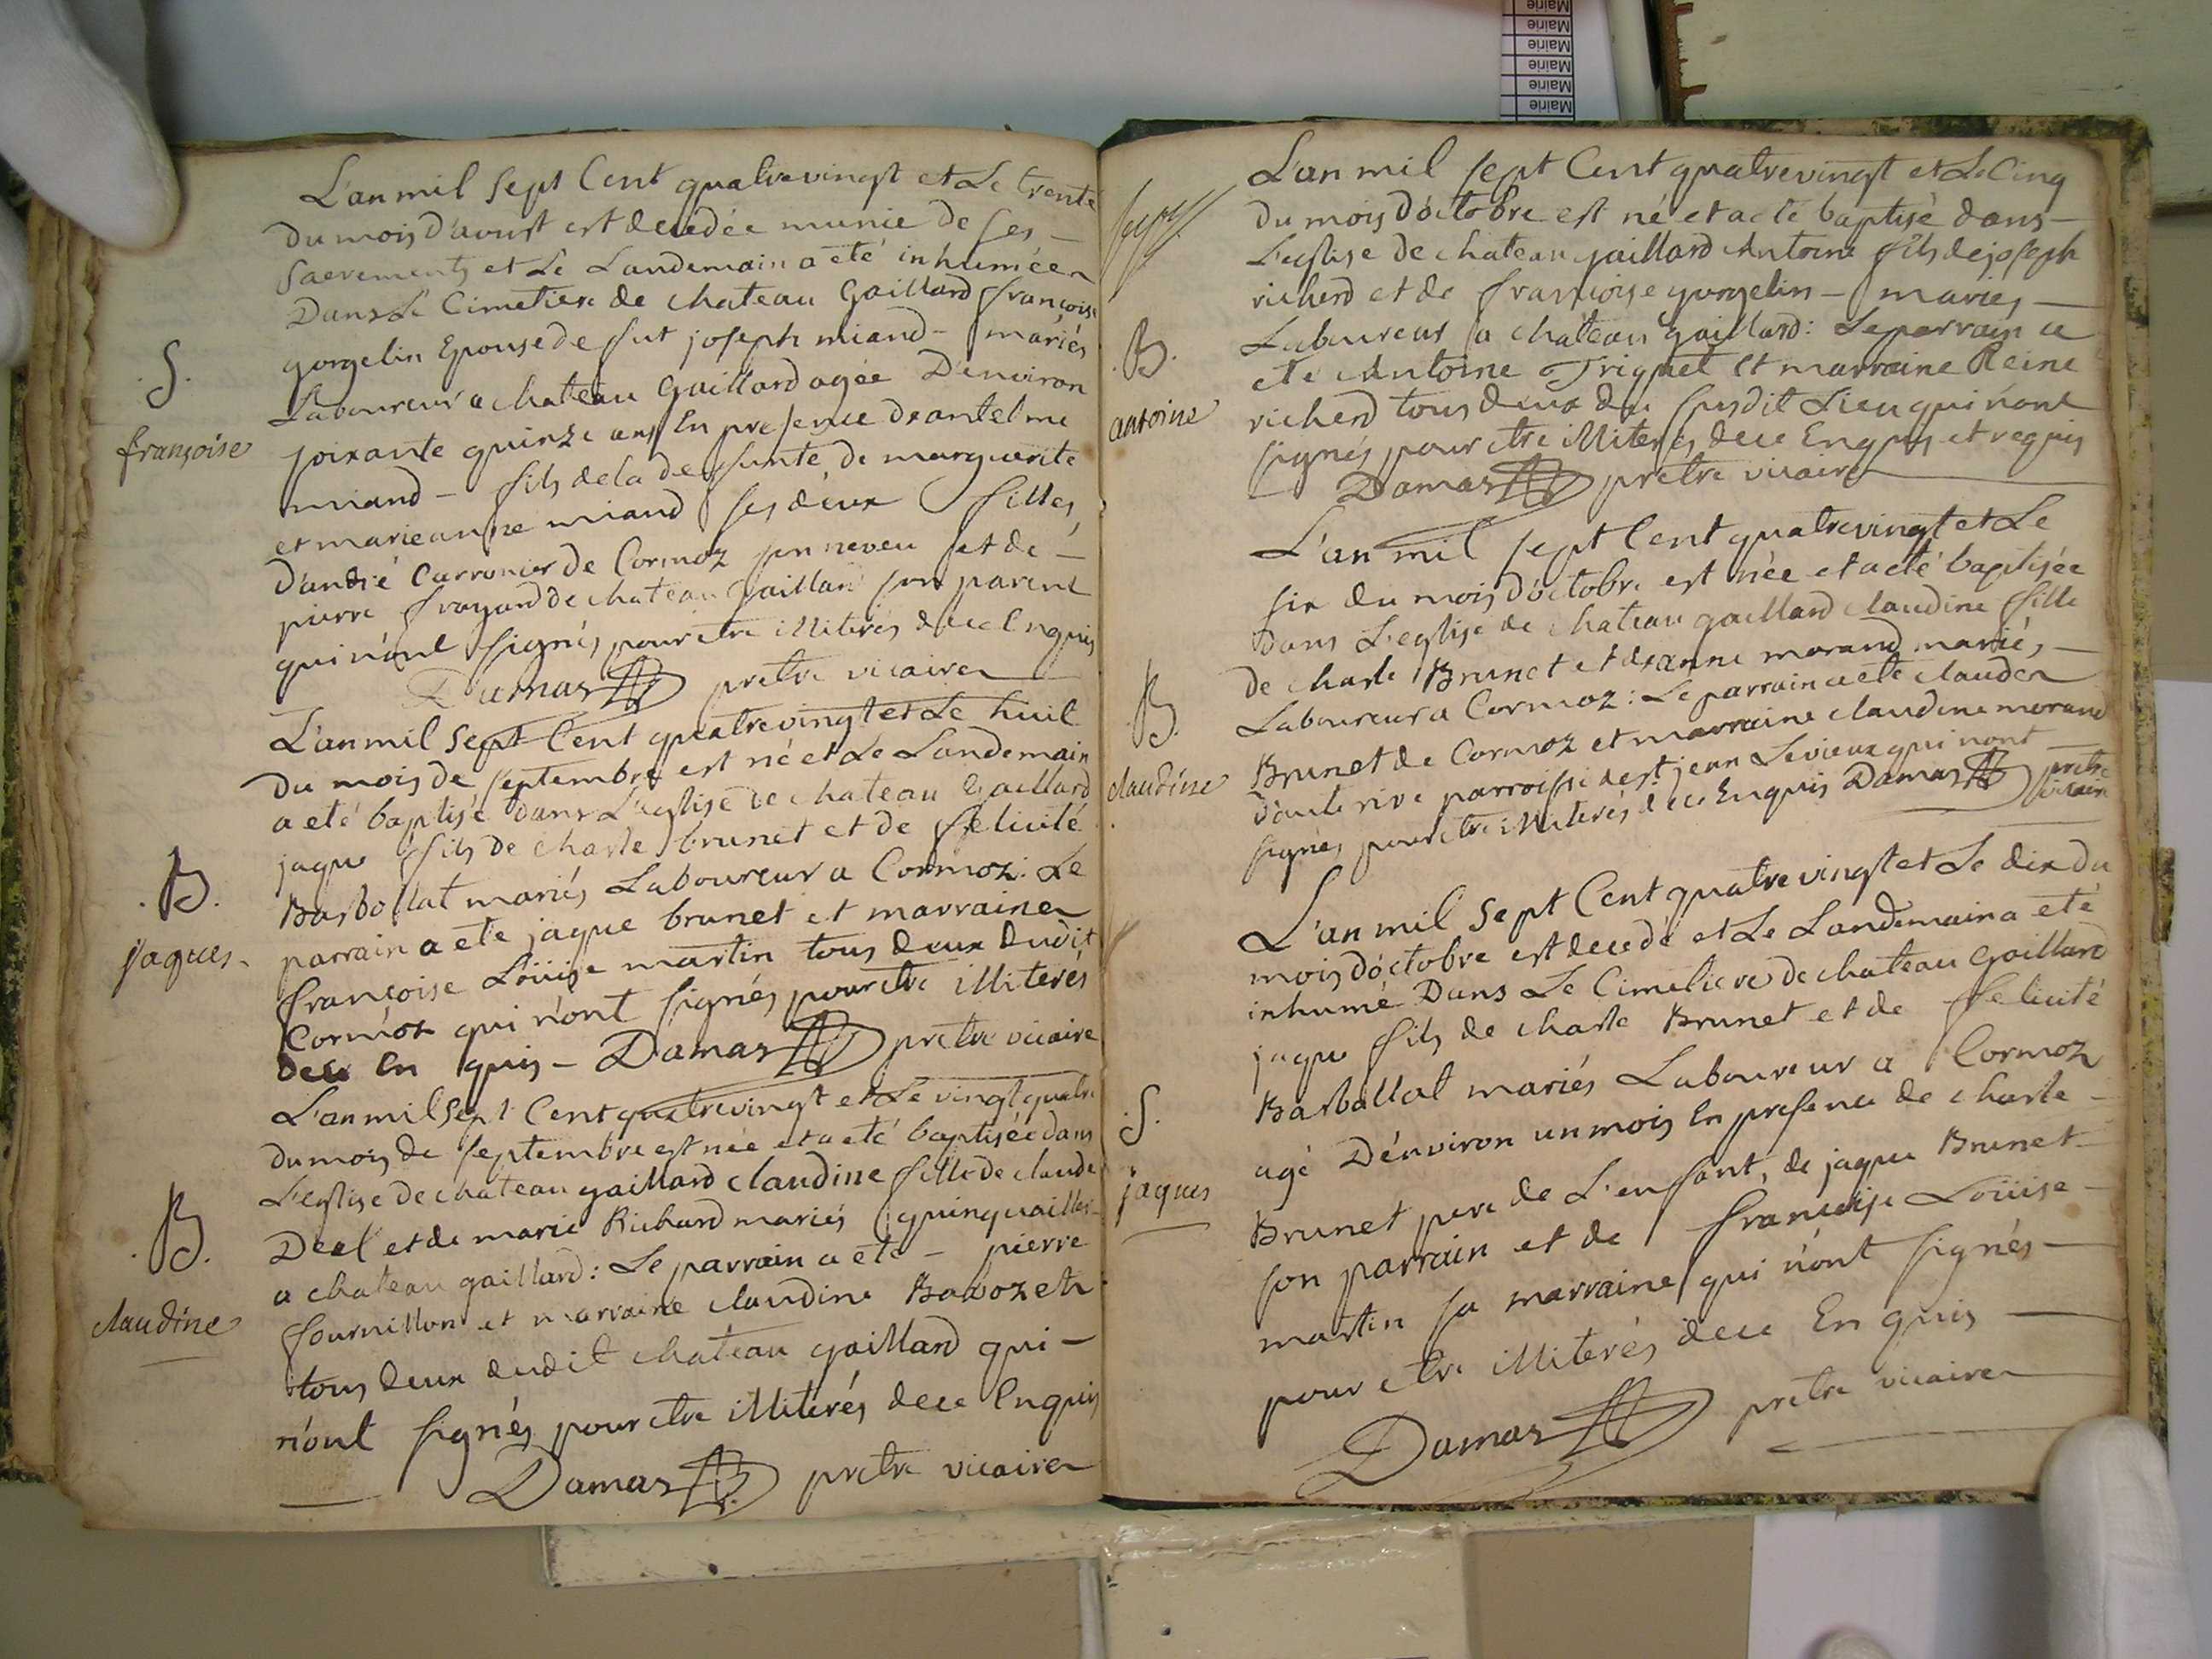 Mairie
Mairie
Mairie
Mairie
Mairie
Mairie
L'an mil Sept Cent quatre vingt et Le trente
du mois d'aoust est decedée munie de ses
Sacrements et Le Landemain a eté inhumée
Dans Le Cimetiere de chateau Gaillard françoise
gorgelin Epouse de fut joseph miand mariés
Laboureur a chateau Gaillard agée D'environ
soixante quinze ans En presence de antelme
miand fils de la defunte, de marguerite
et marieanne miand ses deux filles
d'andré Carronier de Cormoz son neveu et de
pierre frayard de chateau Gaillard son parent
qui n'ont signés pour etre illiterés de ce Enquis
Damas pretre vicaire
.S.
françoise
L'an mil Sept Cent quatre vingt et Le huit
du mois de septembre est né et Le Landemain
a eté baptisé dans L'eglise de chateau Gaillard
jaque fils de charle brunet et de felicité
Barbollat mariés Laboureur a Cormoz: Le
parrain a eté jaque brunet et marraine
françoise Loüise martin tous deux dudit
Cormoz qui n'ont signés pour etre illiterés
de ce En quis - Damas pretre vicaire
.B.
jaques
L'an mil Sept Cent quatre vingt et Le vingt quatre
du mois de septembre est née et a eté baptisée dans
L'eglise de chateau gaillard claudine fille de claude
Deel et de marie Richard mariés quinquailler
a chateau gaillard: Le parrain a eté - pierre
fournillon et marraine claudine Babozet
tous deux dudit chateau gaillard qui -
n'ont signés pour etre illiterés de ce Enquis
Damas pretre vicaire
.B.
claudine
L'an mil sept Cent quatre vingt et Le Cinq
du mois d'octobre est né et a eté baptisé dans
L'eglise de chateau gaillard Antoine fils de joseph
richerd et de françoise gorgelin - mariés
Laboureur a chateau gaillard: Le parrain a
eté Antoine Triquet et marraine Reine
richerd tous deux du susdit Lieu qui n'ont
signés pour etre illiterés de ce Enquis et requis
Damas pretre vicaire
.B.
antoine
L'an mil sept Cent quatre vingt et Le
six du mois d'octobre est née et a eté baptisée
Dans L'eglise de chateau gaillard claudine fille
de charle Brunet et de anne morand mariés
Laboureur a Cormoz: Le parrain a eté claude
Brunet de Cormoz et marraine claudine morand
d'aute rive parroisse de st jean Levieux qui n'ont
signés pour etre illiterés de ce Enquis Damas pretre
vicaire
.B.
claudine
L'an mil Sept Cent quatre vingt et Le dix du
mois d'octobre est decedé et Le Landemain a eté
inhumé Dans Le Cimetiere de chateau Gaillard
jaque fils de charle Brunet et de felicité
Barbollat mariés Laboureur a Cormoz
agé D'environ un mois En presence de charle
Brunet pere de L'enfant, de jaque Brunet
son parrain et de françoise Loüise
martin sa marraine qui n'ont signés
pour etre illiterés de ce En quis
Damas pretre vicaire
.S.
jaques